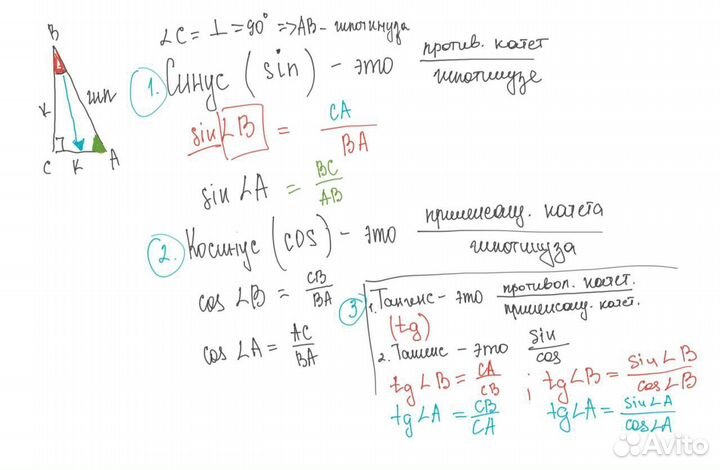 ∠C = ⊥ = 90° => AB - гипотенуза
B
К
гип
C К A
1. Синус (sin) - это против. катет / гипотенузе
sin ∠B = CA / BA
sin ∠A = BC / AB
2. Косинус (cos) - это прилежащ. катета / гипотенуза
cos ∠B = CB / BA
cos ∠A = AC / BA
3
1. Тангенс - это противол. катет. / прилежащ. катет.
(tg)
2. Тангенс - это sin / cos
tg ∠B = CA / CB ; tg ∠B = sin ∠B / cos ∠B
tg ∠A = CB / CA tg ∠A = sin ∠A / cos ∠A
Avito